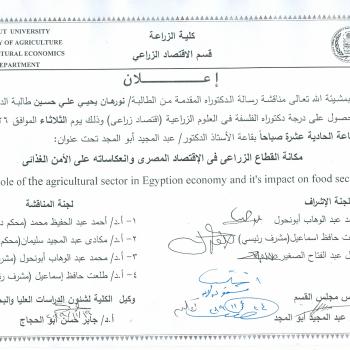 UT UNIVERSITY
Y OF AGRICULTURE
TURAL ECONOMICS
DEPARTMENT
كلية الزراعة
قسم الاقتصاد الزراعي
إعـــلان
بمشيئة الله تعالى مناقشة رسالة الدكتوراه المقدمة من الطالبة/ نورهان يحيي علي حسين طالبة الد
حصول على درجة دكتوراه الفلسفة في العلوم الزراعية (اقتصاد زراعى) وذلك يوم الثلاثاء الموافق ٢٦
اعة الحادية عشرة صباحاً بقاعة الأستاذ الدكتور/ عبد المجيد أبو المجد تحت عنوان:
مكانة القطاع الزراعى فى الإقتصاد المصرى وإنعكاساته على الأمن الغذائى
ole of the agricultural sector in Egyption economy and it's impact on food sec
لجنة الإشراف
مد عبد الوهاب أبونحول
ت حافظ اسماعيل(مشرف رئيسي)
ل عبد الفتاح الصغير
لجنة المناقشة
١- أ.د/ أحمد عبد الحفيظ محمد (محكم
٢- أ.د/ مكادى عبد المجيد سليمان(محكم
٣- أ.د/ محمد عبد الوهاب أبونحول (مشر
٤- أ.د/ طلعت حافظ إسماعيل (مشرف ر
س مجلس القسم
عبد المجيد ابو المجد
وكيل الكلية لشئون الدراسات العليا والبح
أ.د/ جابر حسن أبو الحجاج